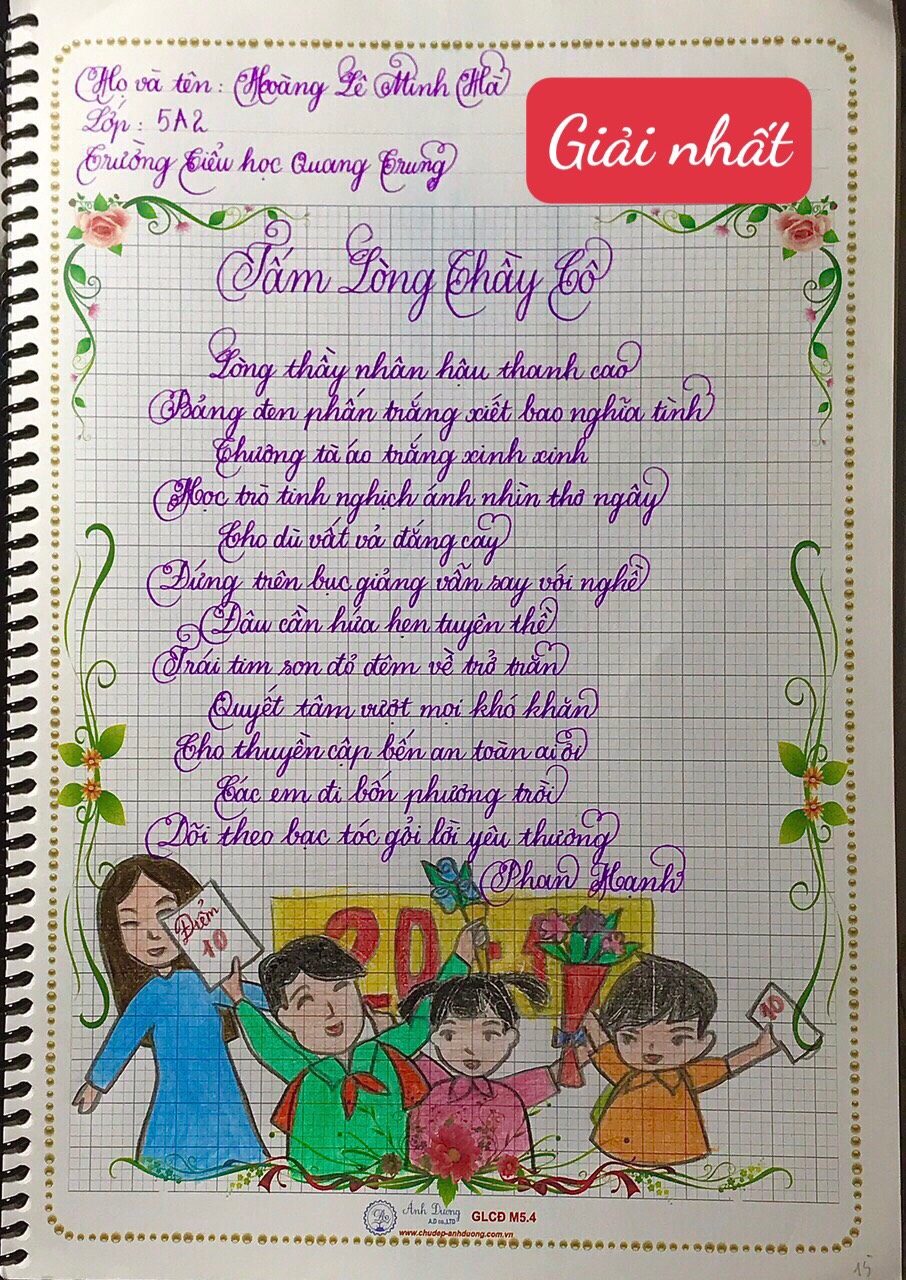 Họ và tên: Hoàng Lê Minh Hà
Lớp: 5A2
Trường Tiểu học Quang Trung
Giải nhất
Tấm Lòng Thầy Cô
Lòng thầy nhân hậu thanh cao
Bảng đen phấn trắng xiết bao nghĩa tình
Thương tà áo trắng xinh xinh
Học trò tinh nghịch ánh nhìn thơ ngây
Cho dù vất vả đắng cay
Đứng trên bục giảng vẫn say với nghề
Đâu cần hứa hẹn tuyên thề
Trái tim son đỏ đêm về trở trăn
Quyết tâm vượt mọi khó khăn
Cho thuyền cập bến an toàn ai ơi
Các em đi bốn phương trời
Dõi theo bạc tóc gởi lời yêu thương
Phan Hạnh
Điểm
10
20-1
10
Ánh Dương
A.D co.,LTD
GLCĐ M5.4
www.chudep-anhduong.com.vn
15